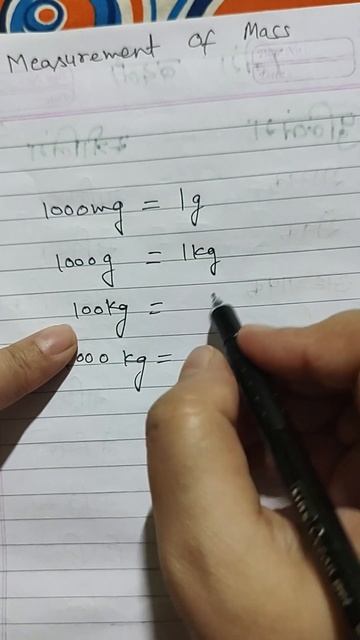 Measurement of Mass
1000mg = 1g
1000g = 1kg
100kg =
000 kg =